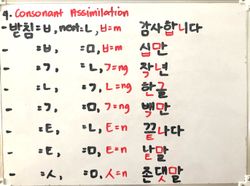 9. Consonant Assimilation
- 받침=ㅂ, next=ㄴ, ㅂ=m 감사합니다
- =ㅂ, =ㅁ, ㅂ=m 십만
- =ㄱ, =ㄴ, ㄱ=ng 작년
- =ㄴ, =ㄱ, ㄴ=ng 한글
- =ㄱ, =ㅁ, ㄱ=ng 백만
- =ㅌ, =ㄴ, ㅌ=n 끝나다
- =ㅌ, =ㅁ, ㅌ=n 낱말
- =ㅅ, =ㅁ, ㅅ=n 존댓말